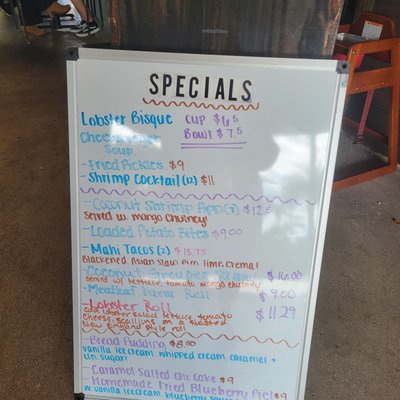 SPECIALS
Lobster Bisque cup $6.5
Bowl $7.5
Soup
-Fried Pickles $9
-Shrimp Cocktail (12) $11
-Coconut Shrimp App $12.5
Served w. mango Chutney!
-Loaded Potato Bites $9.00
-Mahi Tacos (2) $13.75
Blackened, Asian Slaw, Pica, Lime Crema!
-Coconut Grouper $16.00
Served w/ lettuce, tomato mango chutney
-Meatloaf Roll $9.00
-Lobster Roll $11.29
lobster salad lettuce tomato
cheese, scallions on a toasted
New England Style roll
-Bread Pudding $8.00
vanilla ice cream whipped cream caramel +
cin. sugar!
-Caramel Salted Cake $9
-Homemade Fried Blueberry Pie! $9
w. vanilla icecream blueberry